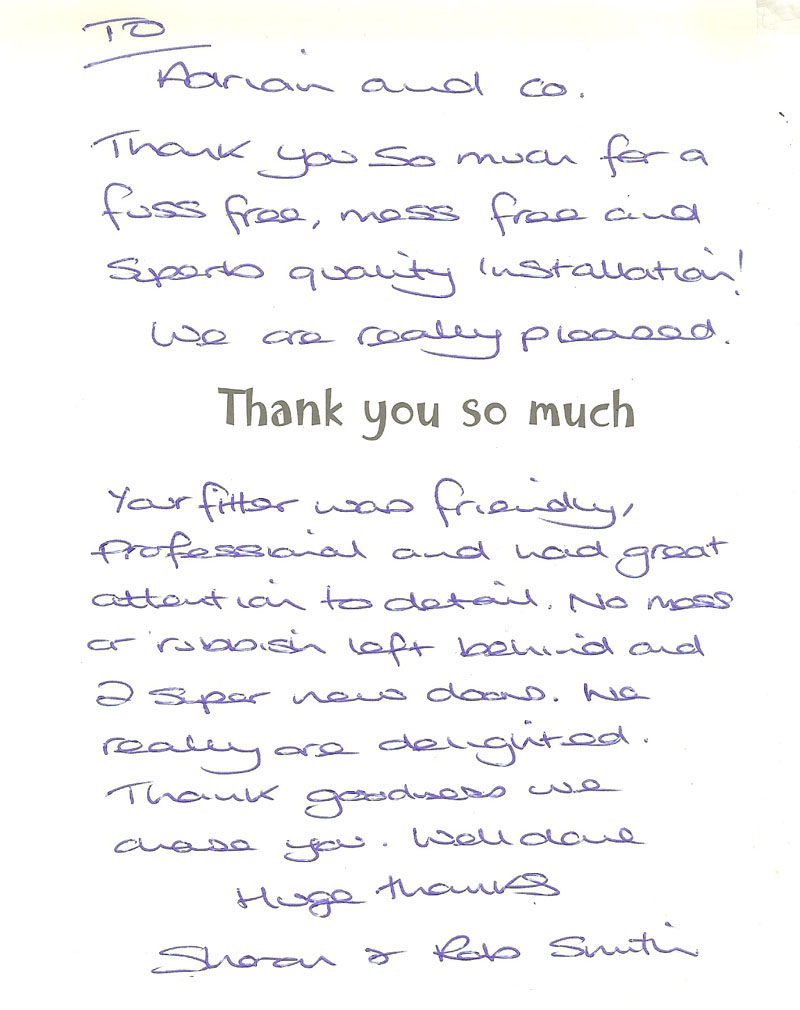 To
Adrian and co.
Thank you so much for a
fuss free, mess free and
Superb quality installation!
We are really pleased.
Thank you so much
Your fitter was friendly,
professional and had great
attention to detail. No mess
or rubbish left behind and
2 super new doors. We
really are delighted.
Thank goodness we
chose you. Well done
Huge thanks
Sharon & Rob Smith